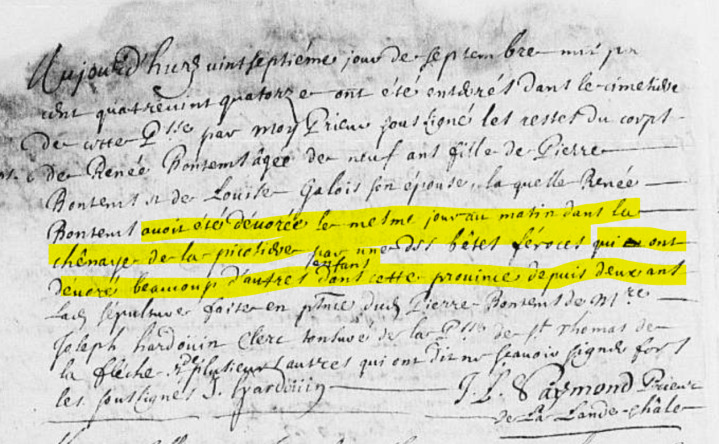 Aujourd'huy vintseptiéme jour de septembre mil
cent quatrevint quatorze ont été enterés dans le cimetiere
de cette P.sse par moy Prieur soussigné les restes du corps
de Renée Bontemt âgée de neuf ans fille de Pierre
Bontemt et de Louise Galois son épouse, la quelle Renée
Bontemt avoit été dévorée le mesme jour au matin dans la
chênaye de la picotiere par une des bêtes féroces qui ont
enfans
dévoré beaucoup d'autres dans cette province depuis deux ans
Lad. sépulture faite en p̃nce dud. Pierre Bontemt de M.re
Joseph hardouin Clerc tonsuré de la P.sse de s.t Thomas de
la flèche et plusieurs autres qui ont dit ne sçavoir signer fors
les soussignés J. hardouin
J. L. Paymond Prieur
de La Lande-châle